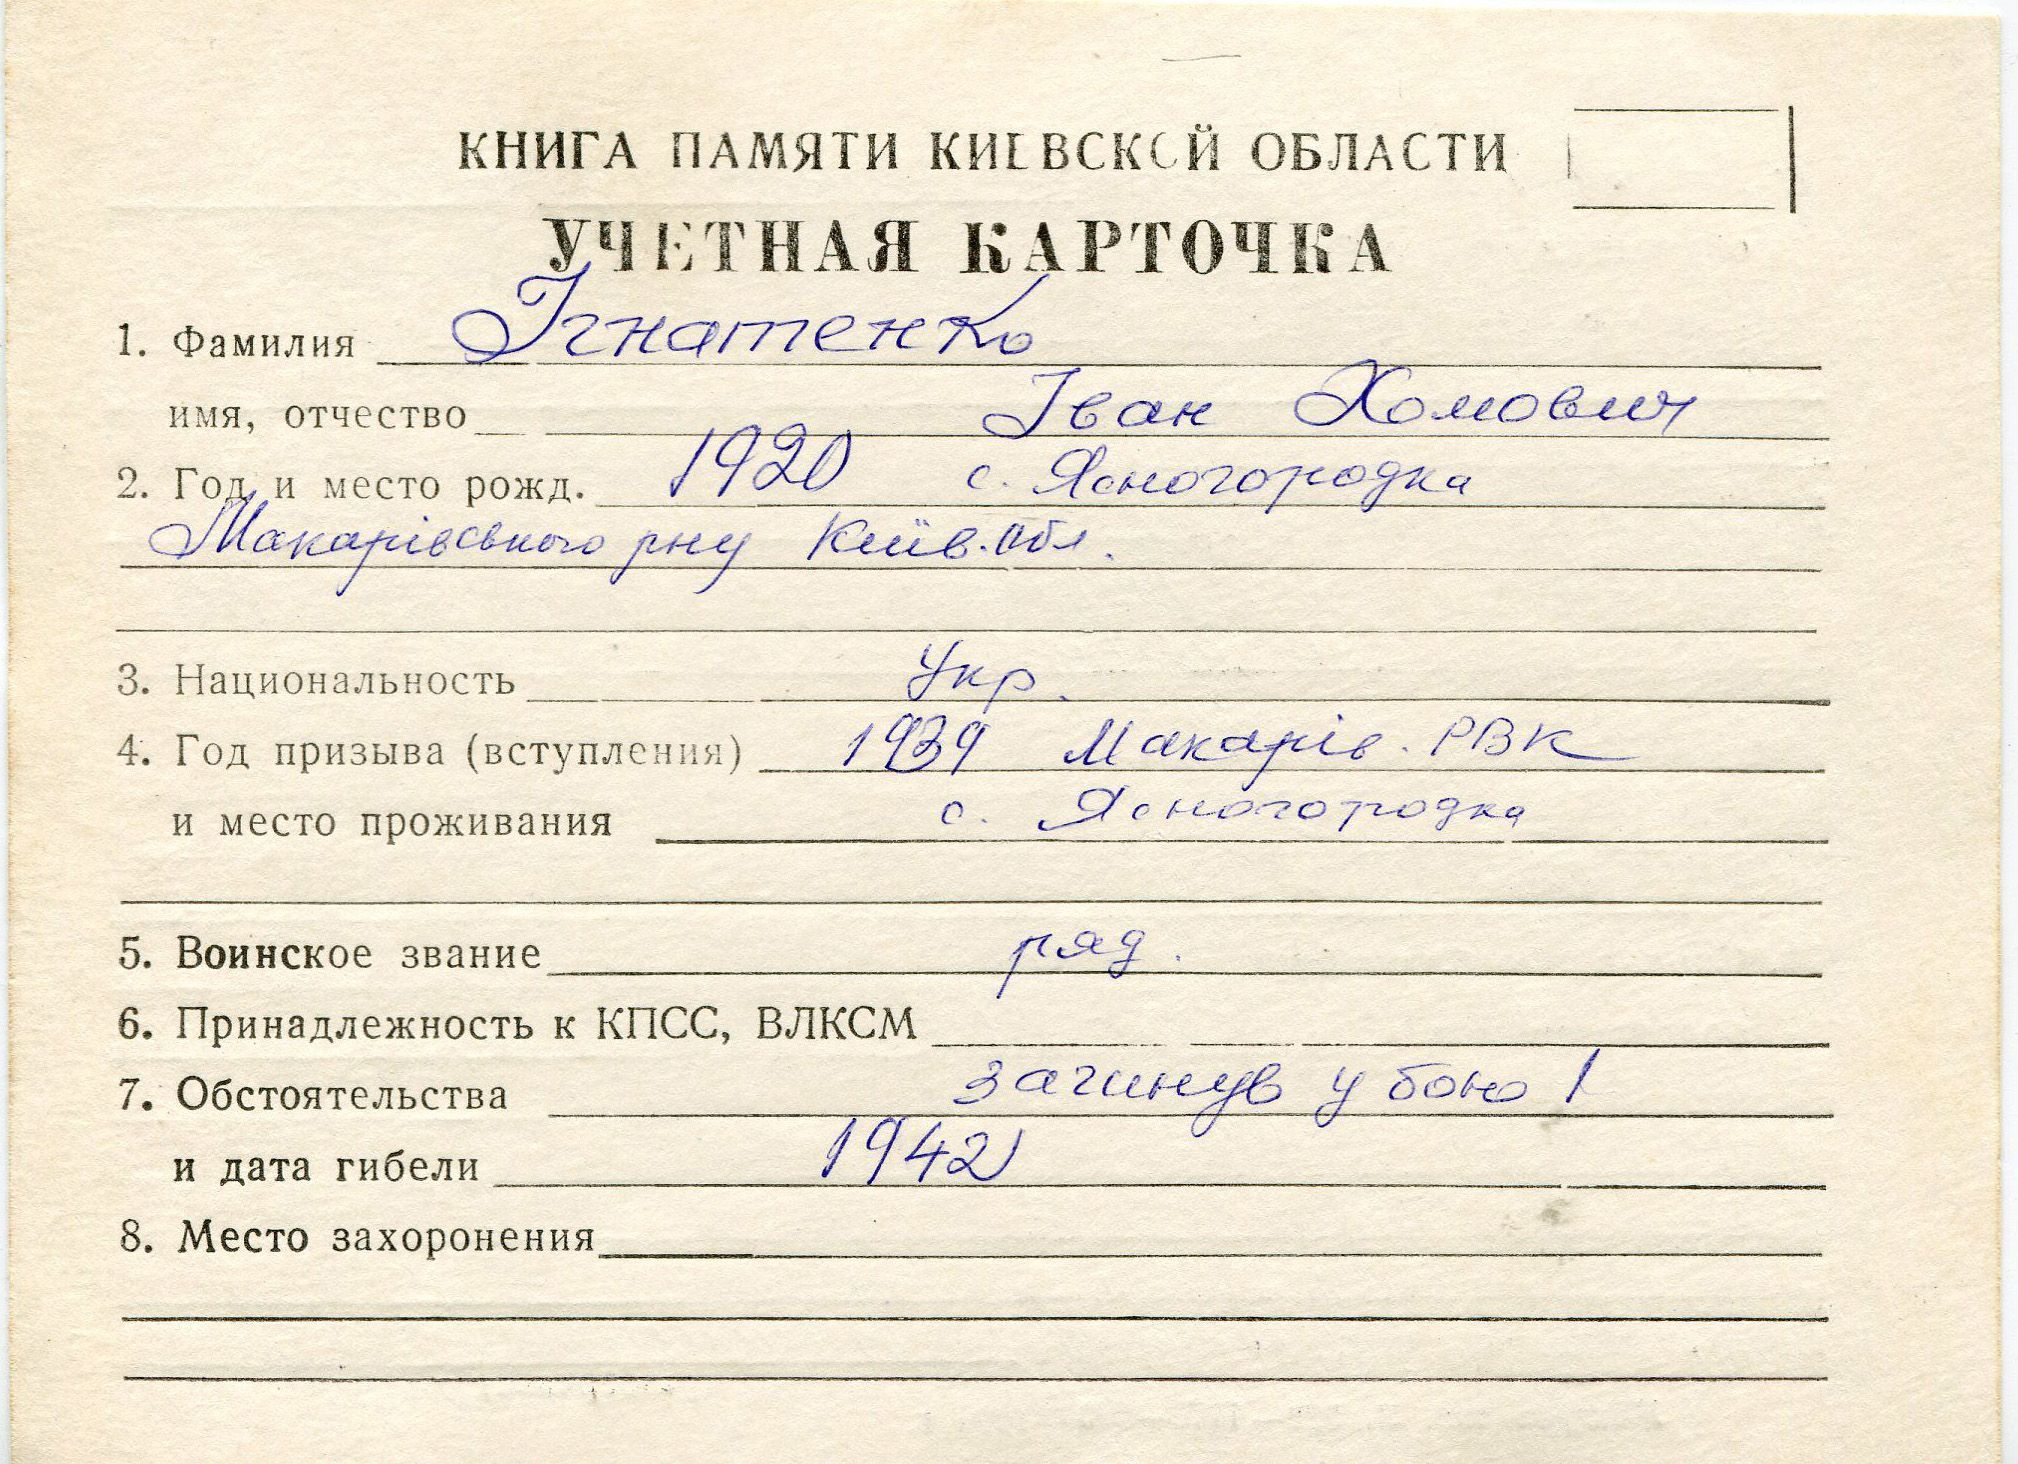 КНИГА ПАМЯТИ КИЕВСКОЙ ОБЛАСТИ
УЧЕТНАЯ КАРТОЧКА
1. Фамилия Ігнатенко
имя, отчество Іван Хомович
2. Год и место рожд. 1920 с. Ясногородка
Макарівського рну Київ. обл.
3. Национальность Укр.
4. Год призыва (вступления) 1939 Макарів. РВК
и место проживания с. Ясногородка
5. Воинское звание ряд.
6. Принадлежность к КПСС, ВЛКСМ
7. Обстоятельства загинув у бою /
и дата гибели 1942
8. Место захоронения